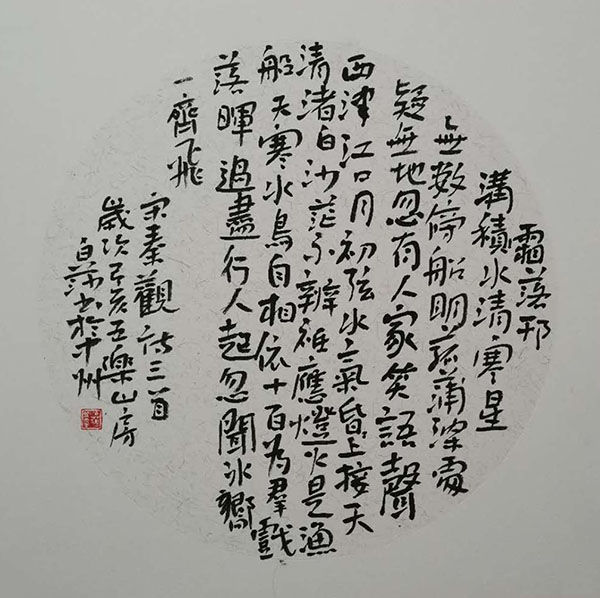 霜落邗
溝積水清寒星
無數傍船明菰蒲深處
疑無地忽有人家笑語聲
西津江口月初弦水氣昏上接天
清渚白沙茫不辨祗應燈火是漁
船天寒水鳥自相依十百為羣戲
落暉過盡行人起忽聞冰響
一齊飛
宋秦觀詩三首
歲次己亥五樂山房
書於中州